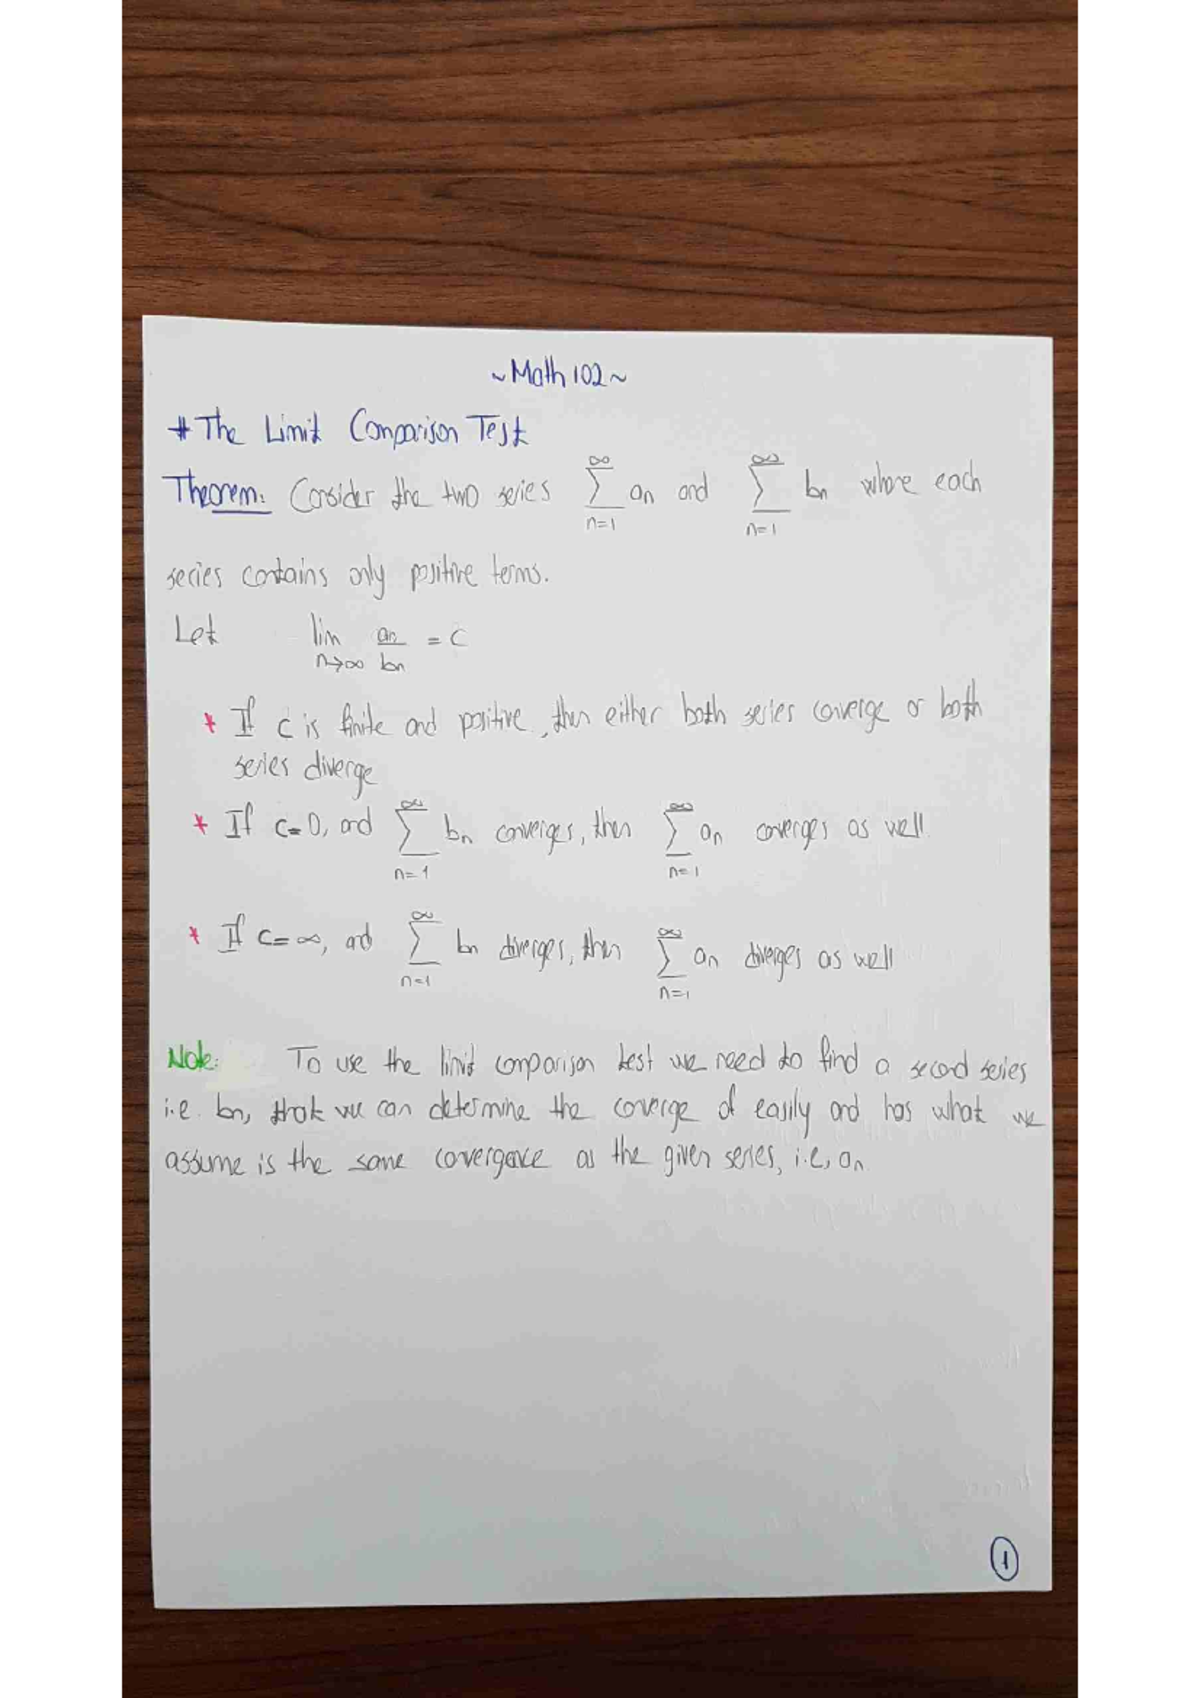 ~Math 102~
# The Limit Comparison Test
Theorem: Consider the two series ∞∑n=1 an and ∞∑n=1 bn where each
series contains only positive terms.
Let lim n→∞ an/bn = c
* If c is finite and positive, then either both series converge or both
series diverge
* If c=0, and ∞∑n=1 bn converges, then ∞∑n=1 an converges as well
* If c=∞, and ∞∑n=1 bn diverges, then ∞∑n=1 an diverges as well
Note: To use the limit comparison test we need to find a second series
i.e. bn, that we can determine the converge of easily and has what we
assume is the same convergence as the given series, i.e, an
1